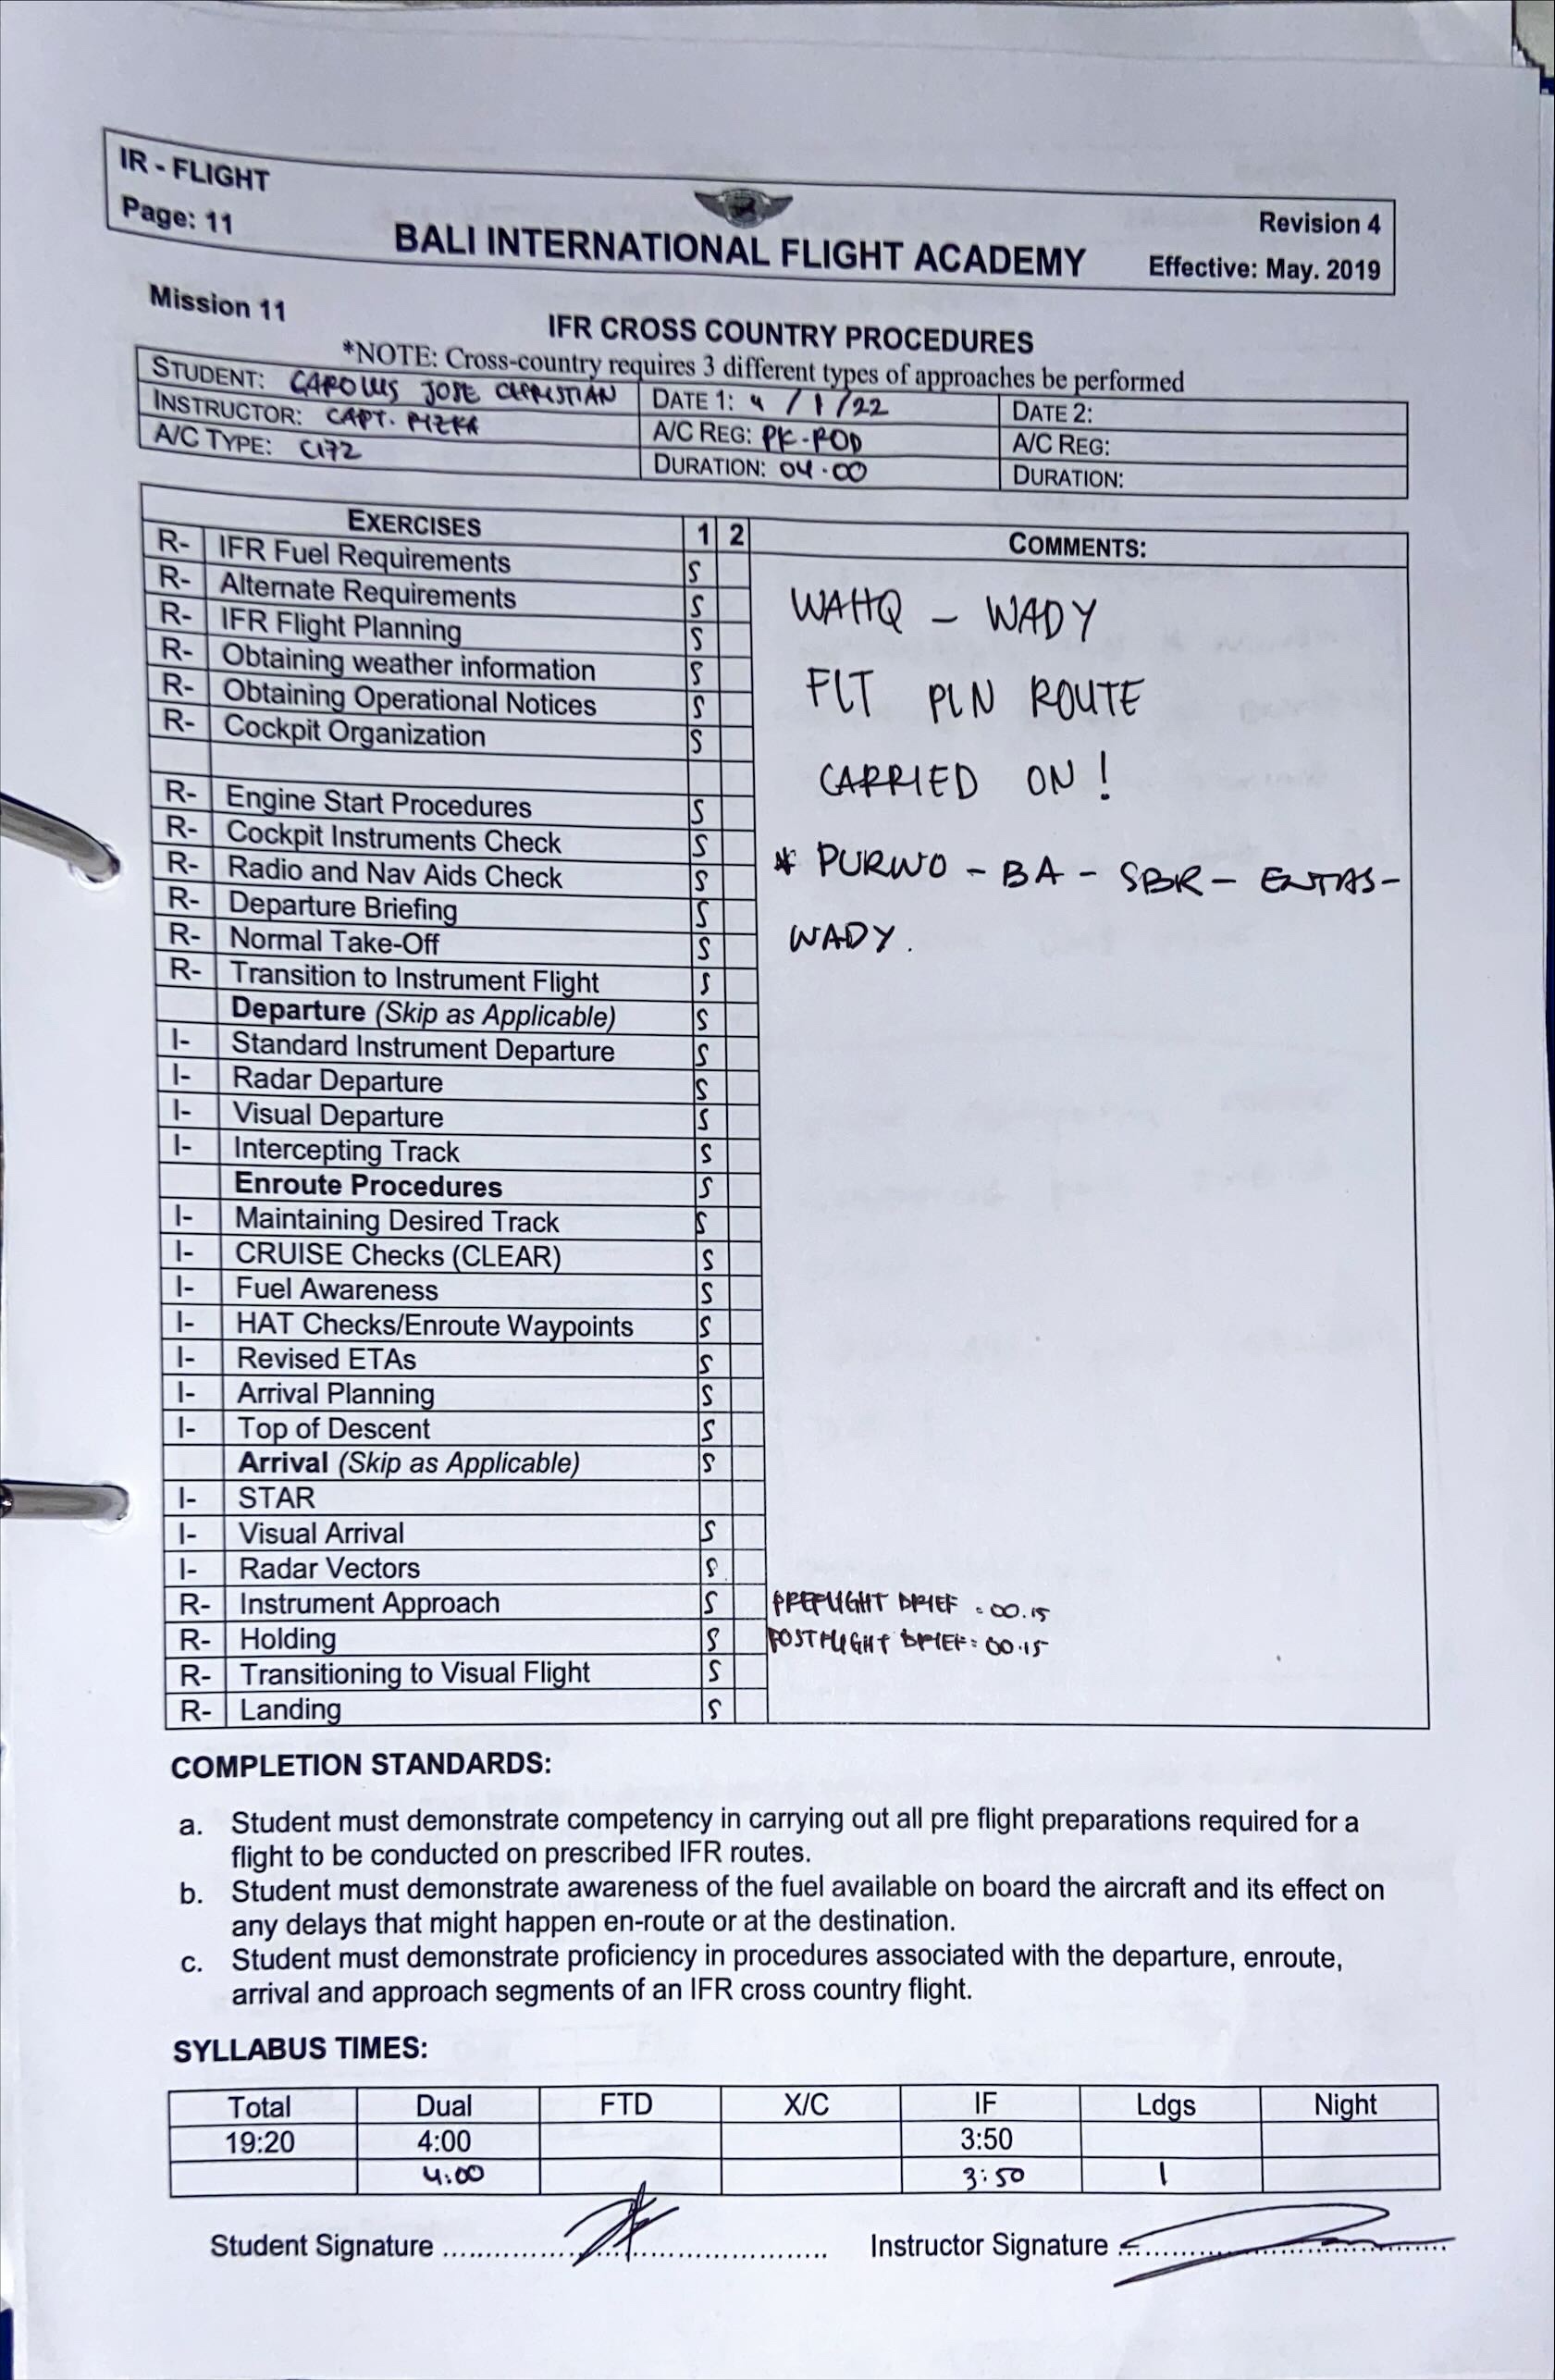 IR - FLIGHT
Page: 11
BALI INTERNATIONAL FLIGHT ACADEMY
Revision 4
Effective: May. 2019
Mission 11
IFR CROSS COUNTRY PROCEDURES
*NOTE: Cross-country requires 3 different types of approaches be performed
STUDENT: CAROLUS JOSE CHRISTIAN DATE 1: 4 / 1 / 22 DATE 2:
INSTRUCTOR: CAPT. RIZKA A/C REG: PK-ROD A/C REG:
A/C TYPE: C172 DURATION: 04.00 DURATION:
EXERCISES 1 2 COMMENTS:
R- IFR Fuel Requirements S
R- Alternate Requirements S
R- IFR Flight Planning S
R- Obtaining weather information S
R- Obtaining Operational Notices S
R- Cockpit Organization S
R- Engine Start Procedures S
R- Cockpit Instruments Check S
R- Radio and Nav Aids Check S
R- Departure Briefing S
R- Normal Take-Off S
R- Transition to Instrument Flight S
Departure (Skip as Applicable) S
I- Standard Instrument Departure S
I- Radar Departure S
I- Visual Departure S
I- Intercepting Track S
Enroute Procedures S
I- Maintaining Desired Track S
I- CRUISE Checks (CLEAR) S
I- Fuel Awareness S
I- HAT Checks/Enroute Waypoints S
I- Revised ETAs S
I- Arrival Planning S
I- Top of Descent S
Arrival (Skip as Applicable) S
I- STAR
I- Visual Arrival S
I- Radar Vectors S
R- Instrument Approach S
R- Holding S
R- Transitioning to Visual Flight S
R- Landing S
WAHQ - WADY
FLT PLN ROUTE
CARRIED ON!
* PURWO - BA - SBR - ENTAS -
WADY.
PREFLIGHT BRIEF : 00.15
POSTFLIGHT BRIEF : 00.15
COMPLETION STANDARDS:
a. Student must demonstrate competency in carrying out all pre flight preparations required for a
flight to be conducted on prescribed IFR routes.
b. Student must demonstrate awareness of the fuel available on board the aircraft and its effect on
any delays that might happen en-route or at the destination.
c. Student must demonstrate proficiency in procedures associated with the departure, enroute,
arrival and approach segments of an IFR cross country flight.
SYLLABUS TIMES:
Total Dual FTD X/C IF Ldgs Night
19:20 4:00 3:50
4:00 3:50 1
Student Signature .......... Instructor Signature ..........